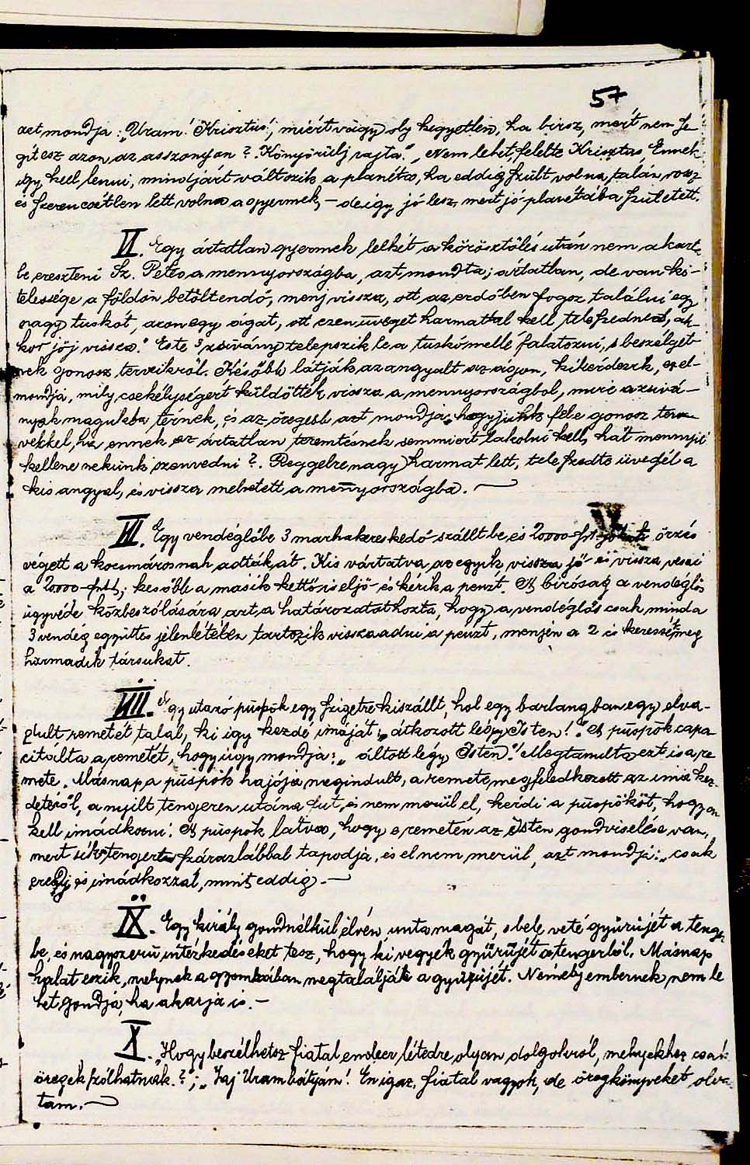 57
azt mondja: „Uram! Krisztus! miért vagy oly kegyetlen, ha birsz, miért nem se-
gitesz azon az asszonyon? Könyörülj rajta." „Nem lehet, felelte Krisztus Ennek
igy kell lenni, mindjárt változik a planéta, ha eddig szült volna, talán rosz
és szerencsétlen lett volna a gyermek, – de igy jó lesz, mert jó planétába született.
VI. Egy ártatlan gyermek lelkét a körösztölés után nem akart
be ereszteni Sz. Péter a mennyországba, azt mondta; ártatlan, de van kö-
telessége a földön betöltendő, menj vissza, ott az erdőben fogsz találni egy
nagy tuskót, azon egy ágat, ott ezen üveget harmattal kell teleszedned, ak-
kor jöjj vissza." Este 3 zsivány telepszik le a tuskó mellé falatozni, s beszélget-
nek gonosz terveikről. Később látják az angyalt az ágon, kikérdezik, ez el-
mondja, mily csekélységért küldötték vissza a mennyországból, mire a zsivá-
nyok magukba térnek, és az öregebb azt mondja, hogy féle gonosz ter-
vekkel, ha ennek az ártatlan teremtésnek semmiért lakolni kell, hát mennyit
kellene nekünk szenvedni?. Reggelre nagy harmat lett, tele szedte üvegét a
kis angyal, és vissza mehetett a mennyországba. —
VII. Egy vendéglőbe 3 marhakereskedő szállt be, és 20000 frt őrzés
végett a kocsmárosnak adták át. Kis vártatva az egyik vissza jő és vissza veszi
a 20000 frtot; később a másik kettő is eljő és kérik a pénzt. A biróság a vendéglős
ügyvéde közbeszólására azt a határozatot hozta, hogy a vendéglős csak mind a
3 vendég együttes jelenlétében tartozik vissza adni a pénzt, menjen a 2 és keressék meg
harmadik társukat.
VIII. Egy utazó püspök egy szigetre kiszállt, hol egy barlangban egy elva-
dult remetét talál, ki igy kezdé imáját: „átkozott légy Isten!" A püspök capa-
citálta a remetét, hogy úgy mondja: „áldott légy Isten." Megtanulta ezt is a re-
mete. Másnap a püspök hajója megindult, a remete megfeledkezett az ima kez-
detéről, a nyilt tengeren utána fut, és nem merül el, kérdi a püspököt, hogyan
kell imádkozni! A püspök látva, hogy e remetén az Isten gondviselése van,
mert tengert szárazlábbal tapodja, és el nem merül, azt mondja: „csak
eredj és imádkozzál, mint eddig. —
IX. Egy király gond nélkül élvén unta magát, s bele veté gyürüjét a tenger-
be, és nagyszerü intézkedéseket tesz, hogy ki vegyék gyürüjét a tengerből. Másnap
halat eszik, melynek a gyomrában megtalálják a gyürüjét. Némely embernek nem le-
het gondja, ha akarja is. –
X. „Hogy beszélhetsz fiatal ember létedre olyan dolgokról, melyekhez csak
öregek szólhatnak.?"; „Jaj Uram bátyám! Én igaz, fiatal vagyok, de öreg könyveket olvas-
tam. —